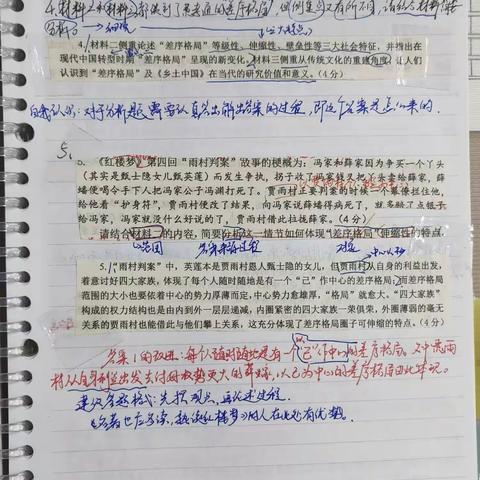 4.材料一侧重论述“差序格局”等级性、伸缩性、壁垒性等三大社会特征,并指出在
现代中国转型时期“差序格局”呈现的新变化。材料三侧重从传统文化的重建角度,让人们
认识到“差序格局”及《乡土中国》在当代的研究价值和意义。(4分)
自我认识:对于分析题,需要认真写出解出答案的过程,即这个答案是怎么来的.
5.
《红楼梦》第四回“雨村判案”故事的梗概为:冯家和薛家因为争买一个丫头
(其实是甄士隐女儿甄英莲)而发生争执,拐子收了冯家钱又把丫头卖给薛家,薛
蟠便喝令手下人把冯家公子冯渊打死了。贾雨村正要判案的时候一个幕僚拦住他,
给他看“护身符”,贾雨村便改了结果,向冯家说薛蟠得病死了,就多赔了点银子
给冯家,冯家就没什么好说的了,贾雨村借此拉拢薛家。(4分)
请结合材料一的内容,简要分析这一情节如何体现“差序格局”伸缩性的特点
5.1“雨村判案”中,英莲本是贾雨村恩人甄士隐的女儿,但贾雨村从自身的利益出发,
着意讨好四大家族,体现了每个人随时随地是有一个“己”作中心的差序格局;而差序格局
范围的大小也要依着中心的势力厚薄而定,中心势力愈雄厚,“格局”就愈大。“四大家族”
构成的权力结构是由内到外一层层递减,内圈紧密的四大家族一荣俱荣,外圈薄弱的毫无
关系的贾雨村也能借此与他们攀上关系,这充分体现了差序格圈子可伸缩的特点。(4分)
答案1的改进:每个人随时随地是有一个“己”作中心的差序格局。文中贾雨
村从自身利益出发去付权势更大的薛蟠,以己为中心的差序格局由此体现。
建议答题格式:先摆观点,再论述过程.
名著也应多读,熟读《红楼梦》的人在此处有优势。